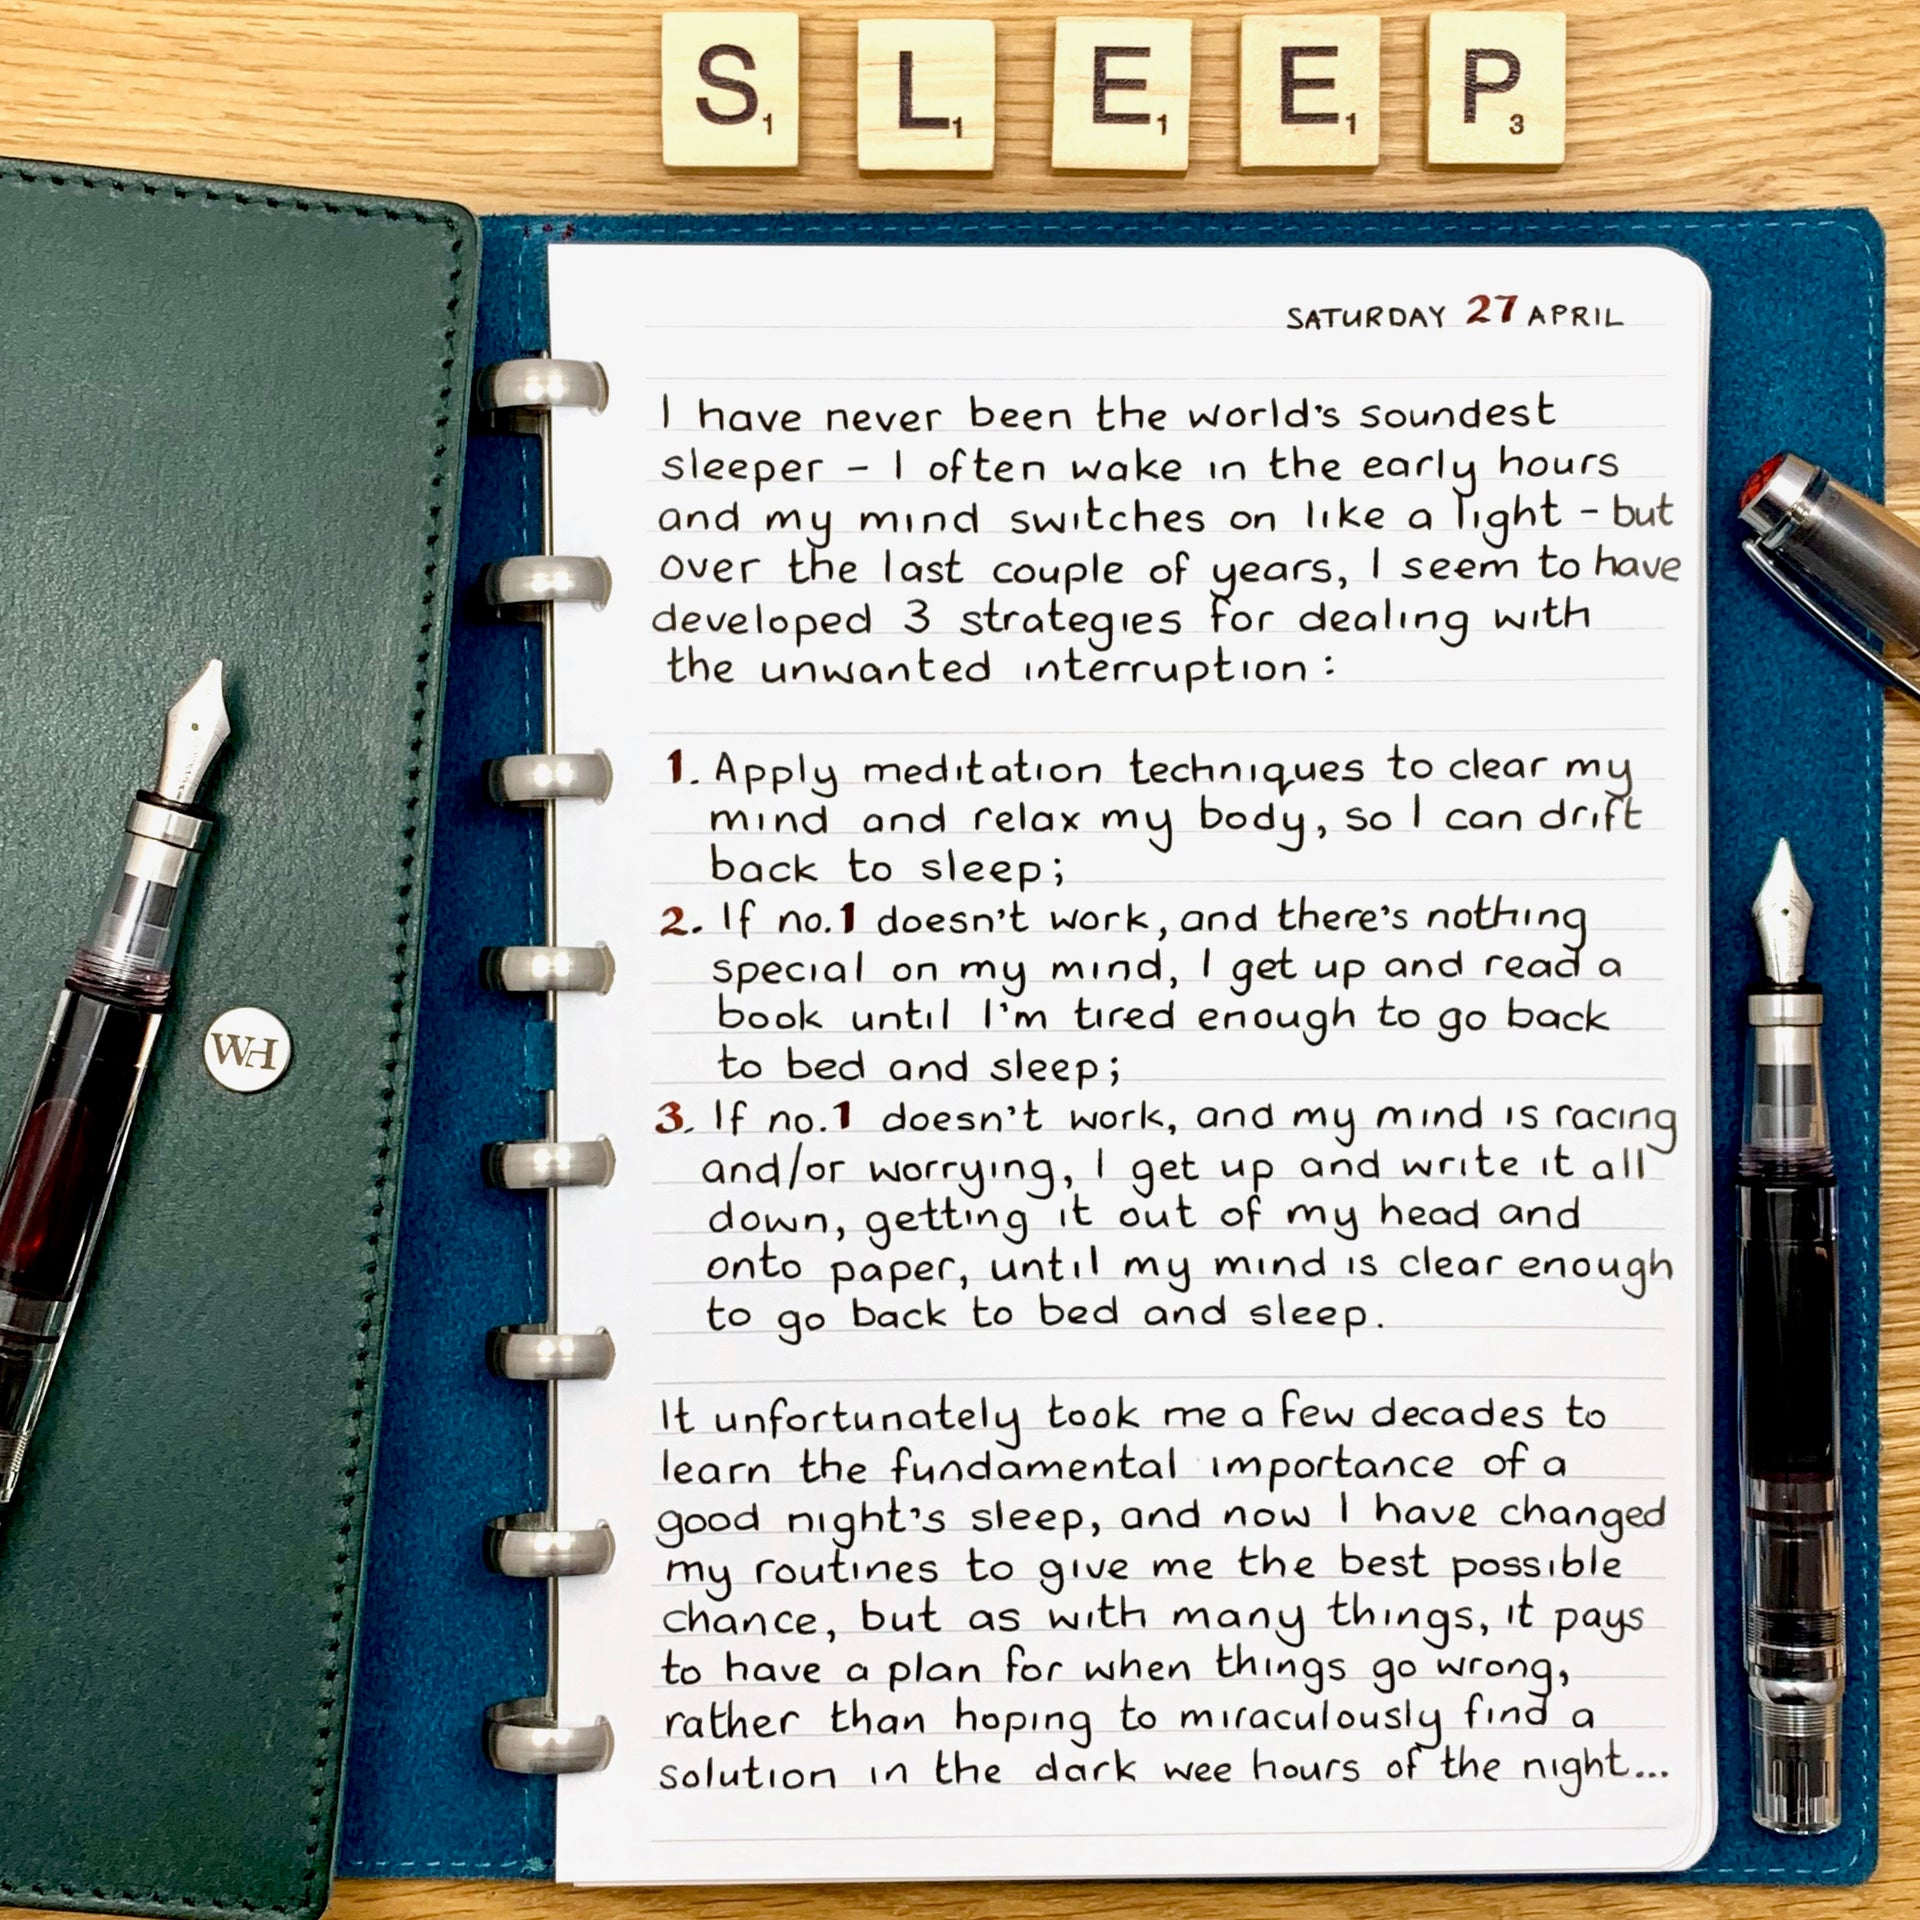 S1 L1 E1 E1 P3
SATURDAY 27 APRIL
I have never been the world's soundest
sleeper - I often wake in the early hours
and my mind switches on like a light - but
over the last couple of years, I seem to have
developed 3 strategies for dealing with
the unwanted interruption:
1. Apply meditation techniques to clear my
mind and relax my body, so I can drift
back to sleep;
2. If no.1 doesn't work, and there's nothing
special on my mind, I get up and read a
book until I'm tired enough to go back
to bed and sleep;
3. If no.1 doesn't work, and my mind is racing
and/or worrying, I get up and write it all
down, getting it out of my head and
onto paper, until my mind is clear enough
to go back to bed and sleep.
It unfortunately took me a few decades to
learn the fundamental importance of a
good night's sleep, and now I have changed
my routines to give me the best possible
chance, but as with many things, it pays
to have a plan for when things go wrong,
rather than hoping to miraculously find a
solution in the dark wee hours of the night...
WH